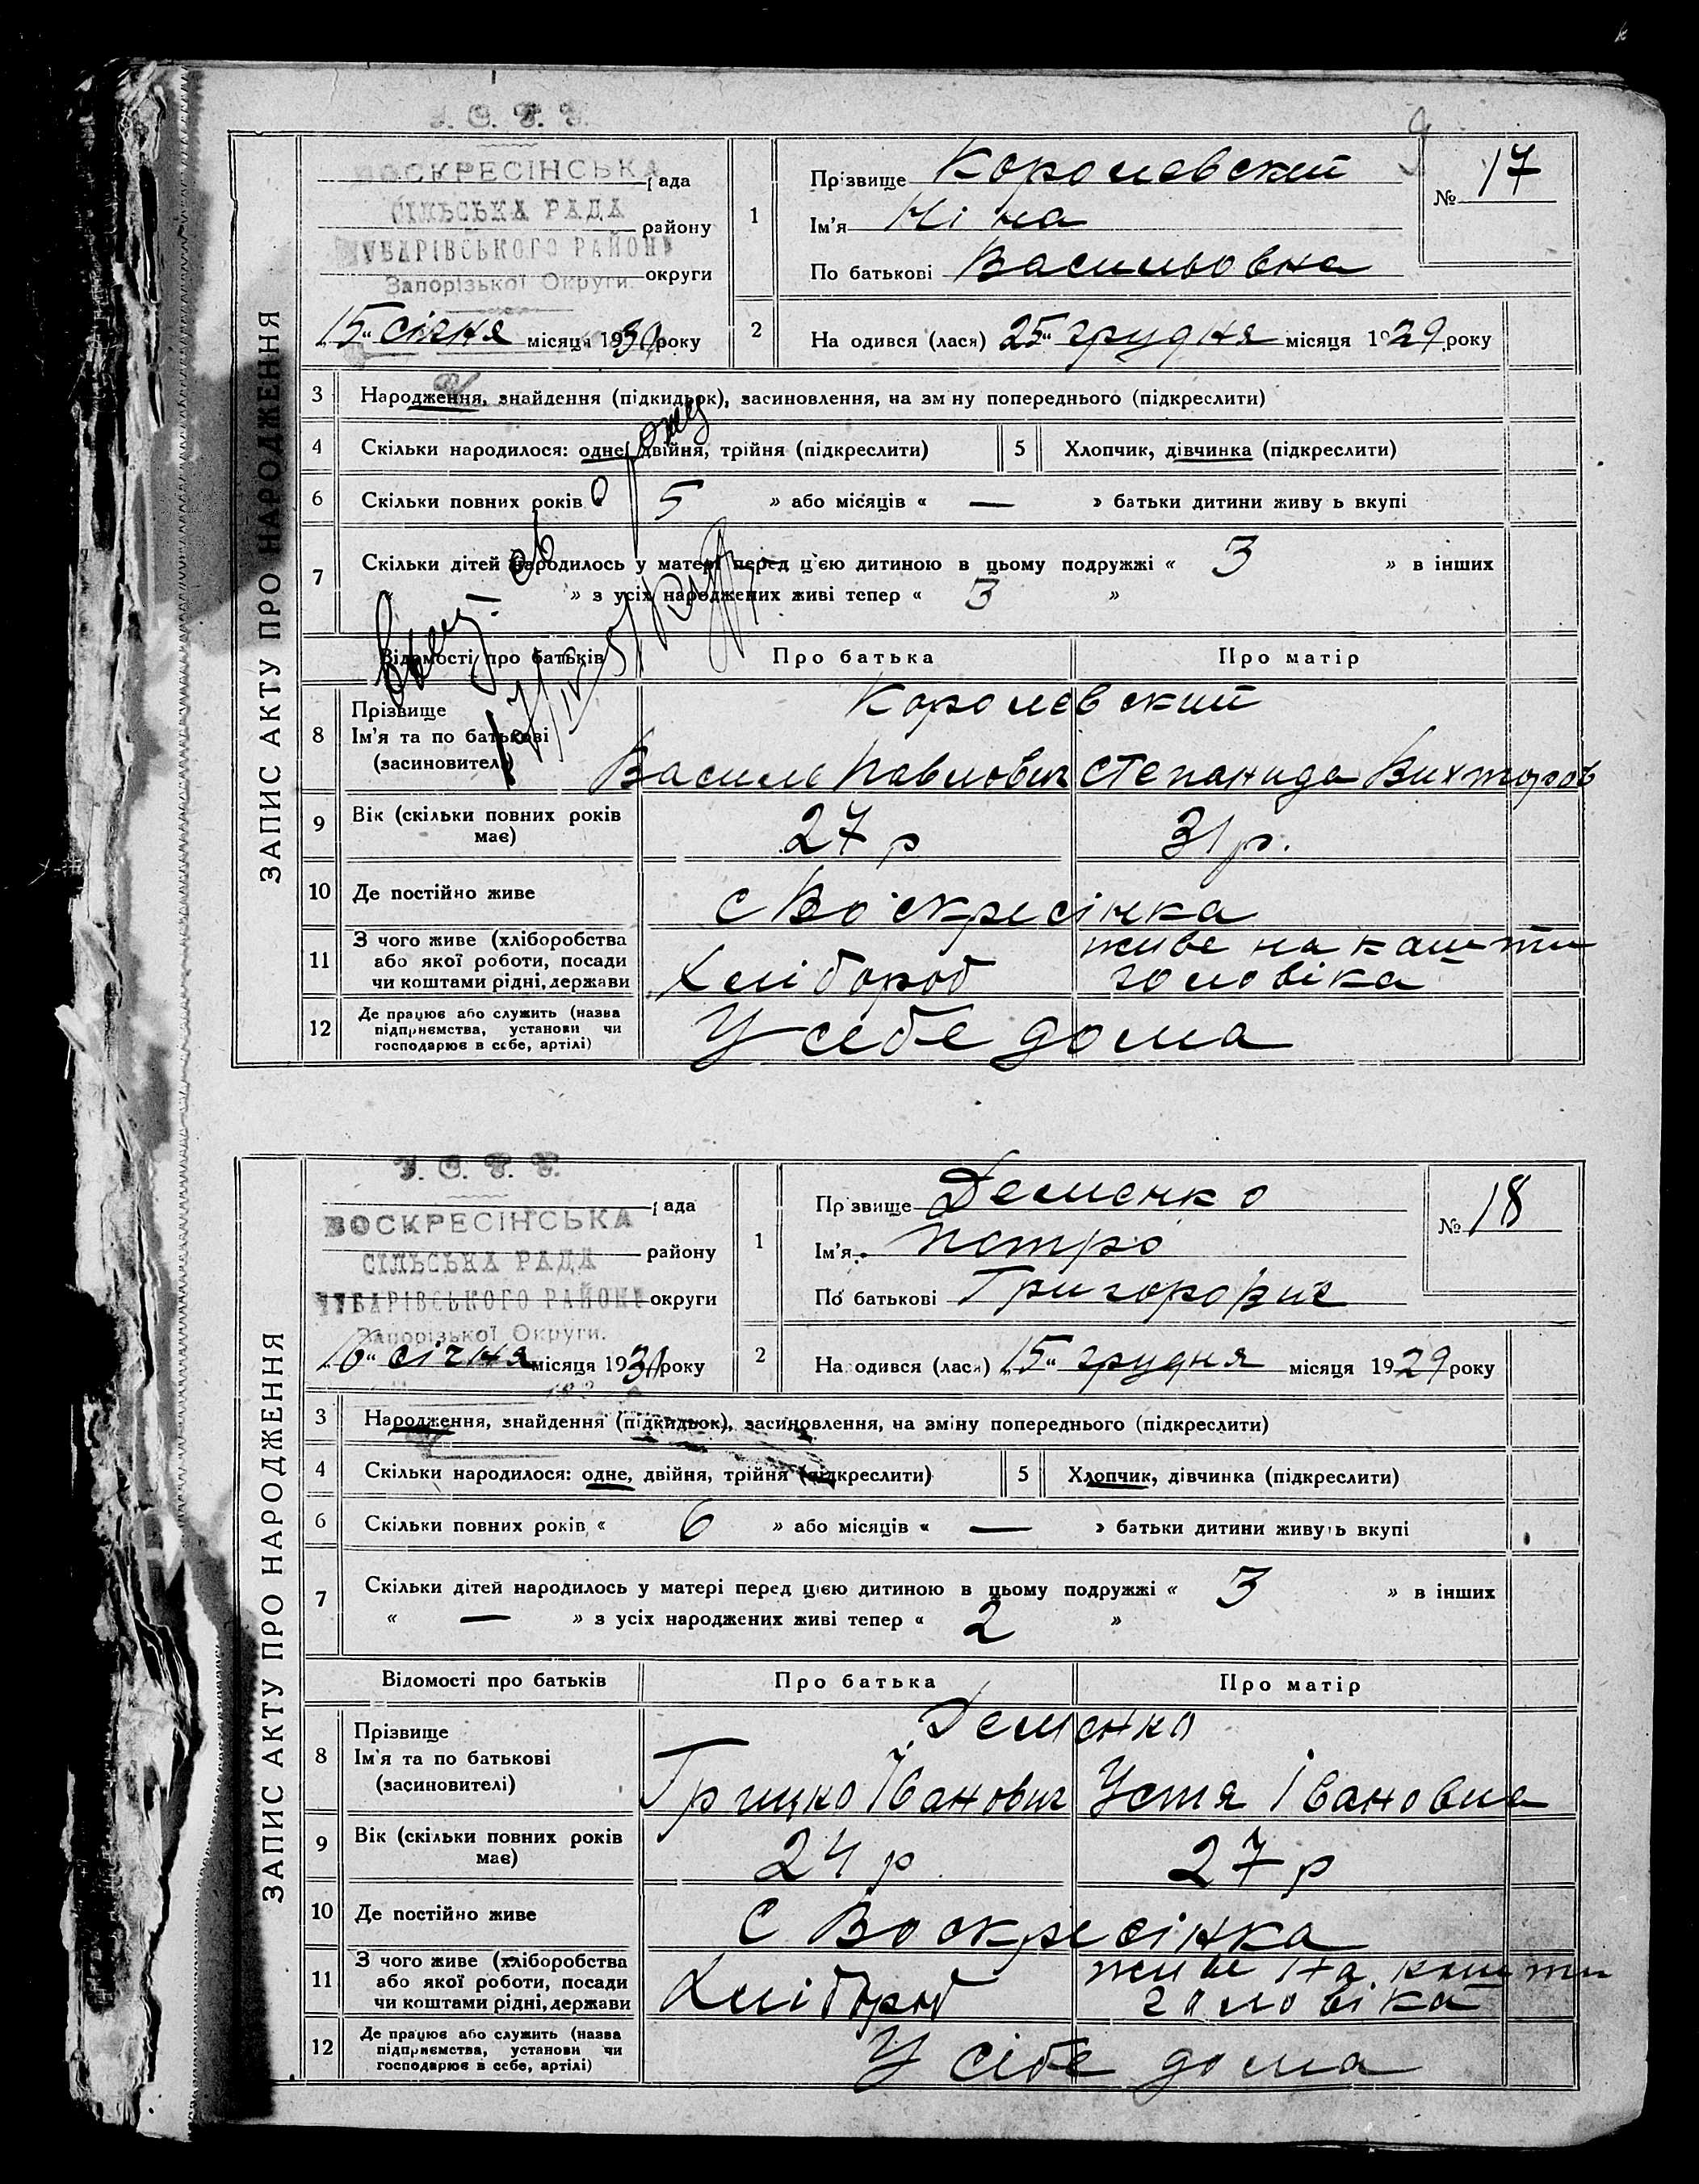 9
У. С. Р. Р.
ВОСКРЕСІНСЬКА рада
СІЛЬСЬКА РАДА району
ЧУБАРІВСЬКОГО РАЙОНУ
Запорізької Округи. округи
„15“ січня місяця 1930 року
1
Прізвище Королевский
Ім'я Ніна
По батькові Васильовна
№ 17
2 На одився (лася) 25“ грудня місяця 1929 року
ЗАПИС АКТУ ПРО НАРОДЖЕННЯ
3 Народження, знайдення (підкидьок), засиновлення, на зм ну попереднього (підкреслити)
4 Скільки народилося: одне, двійня, трійня (підкреслити) 5 Хлопчик, дівчинка (підкреслити)
6 Скільки повних років « 5 » або місяців « — » батьки дитини живу ь вкупі
7 Скільки дітей народилось у матері перед цією дитиною в цьому подружжі « 3 » в інших
« » з усіх народжених живі тепер « 3 »
Відомості про батьків Про батька Про матір
8 Прізвище Королевский
Ім'я та по батькові
(засиновителі) Василь Павлович Степанида Вихторов
9 Вік (скільки повних років має) 27 р 31 р.
10 Де постійно живе с Воскресінка
11 З чого живе (хліборобства або якої роботи, посади чи коштами рідні, держави Хлібороб живе на кошти чоловіка
12 Де працює або служить (назва підприємства, установи чи господарює в себе, артілі) У себе дома
У. С. Р. Р.
рада
ВОСКРЕСІНСЬКА
району
СІЛЬСЬКА РАДА
ЧУБАРІВСЬКОГО РАЙОНУ округи
Запорізької Округи.
„16“ січня місяця 1930 року
1
Пр звище Деменко
Ім'я Петро
По батькові Григорович
№ 18
2 На одився (лася) „15“ грудня місяця 1929 року
ЗАПИС АКТУ ПРО НАРОДЖЕННЯ
3 Народження, знайдення (підкидьок), засиновлення, на зміну попереднього (підкреслити)
4 Скільки народилося: одне, двійня, трійня (підкреслити) 5 Хлопчик, дівчинка (підкреслити)
6 Скільки повних років, « 6 » або місяців « — » батьки дитини живу ь вкупі
7 Скільки дітей народилось у матері перед цією дитиною в цьому подружжі « 3 » в інших
« — » з усіх народжених живі тепер « 2 »
Відомості про батьків Про батька Про матір
8 Прізвище Деменко
Ім'я та по батькові
(засиновителі) Грицко Іванович Устя Івановна
9 Вік (скільки повних років має) 24 р 27 р
10 Де постійно живе С Воскресінка
11 З чого живе (хліборобства або якої роботи, посади чи коштами рідні, держави Хлібороб живе на кошти чоловіка
12 Де працює або служить (назва підприємства, установи чи господарює в себе, артілі) У сібе дома